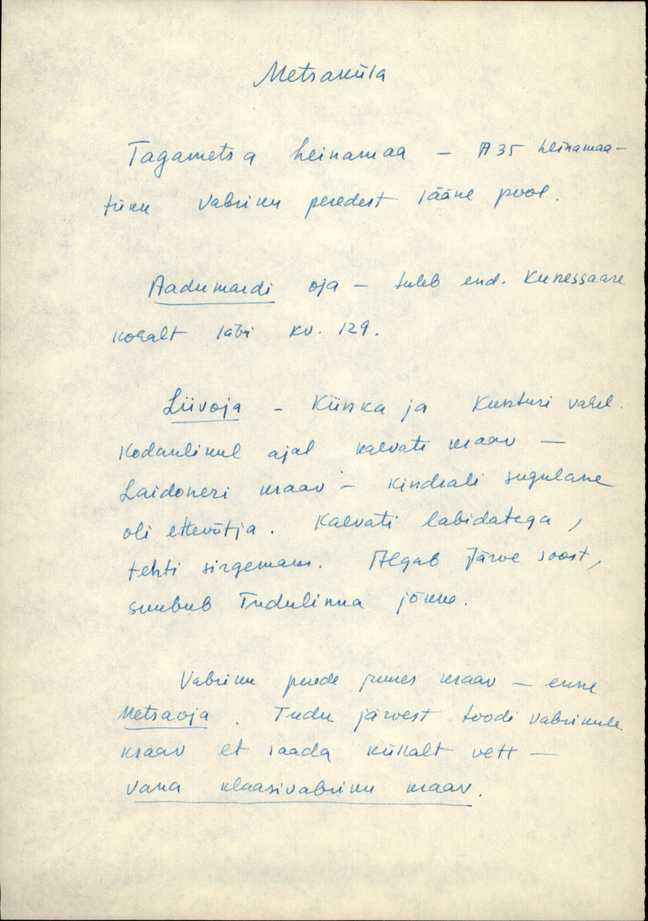 Metsaküla
Tagametsa heinamaa – A 35 heinamaa-
tükk vabriku peredest lääne pool.
Aadumardi oja – tuleb end. Kunessaare
kohalt läbi kv. 129.
Liivoja – Künka ja Kunturi vahel.
Kodanlikul ajal kaevati kraav –
Laidoneri kraav – kindrali sugulane
oli ettevõtja. Kaevati labidatega,
tehti sirgemaks. Algab Järve soost,
suubub Tudulinna jõkke.
Vabriku perede juures kraav – enne
Metsaoja. Tudu järvest toodi vabrikule
kraav et saada küllalt vett –
Vana klaasivabriku kraav.